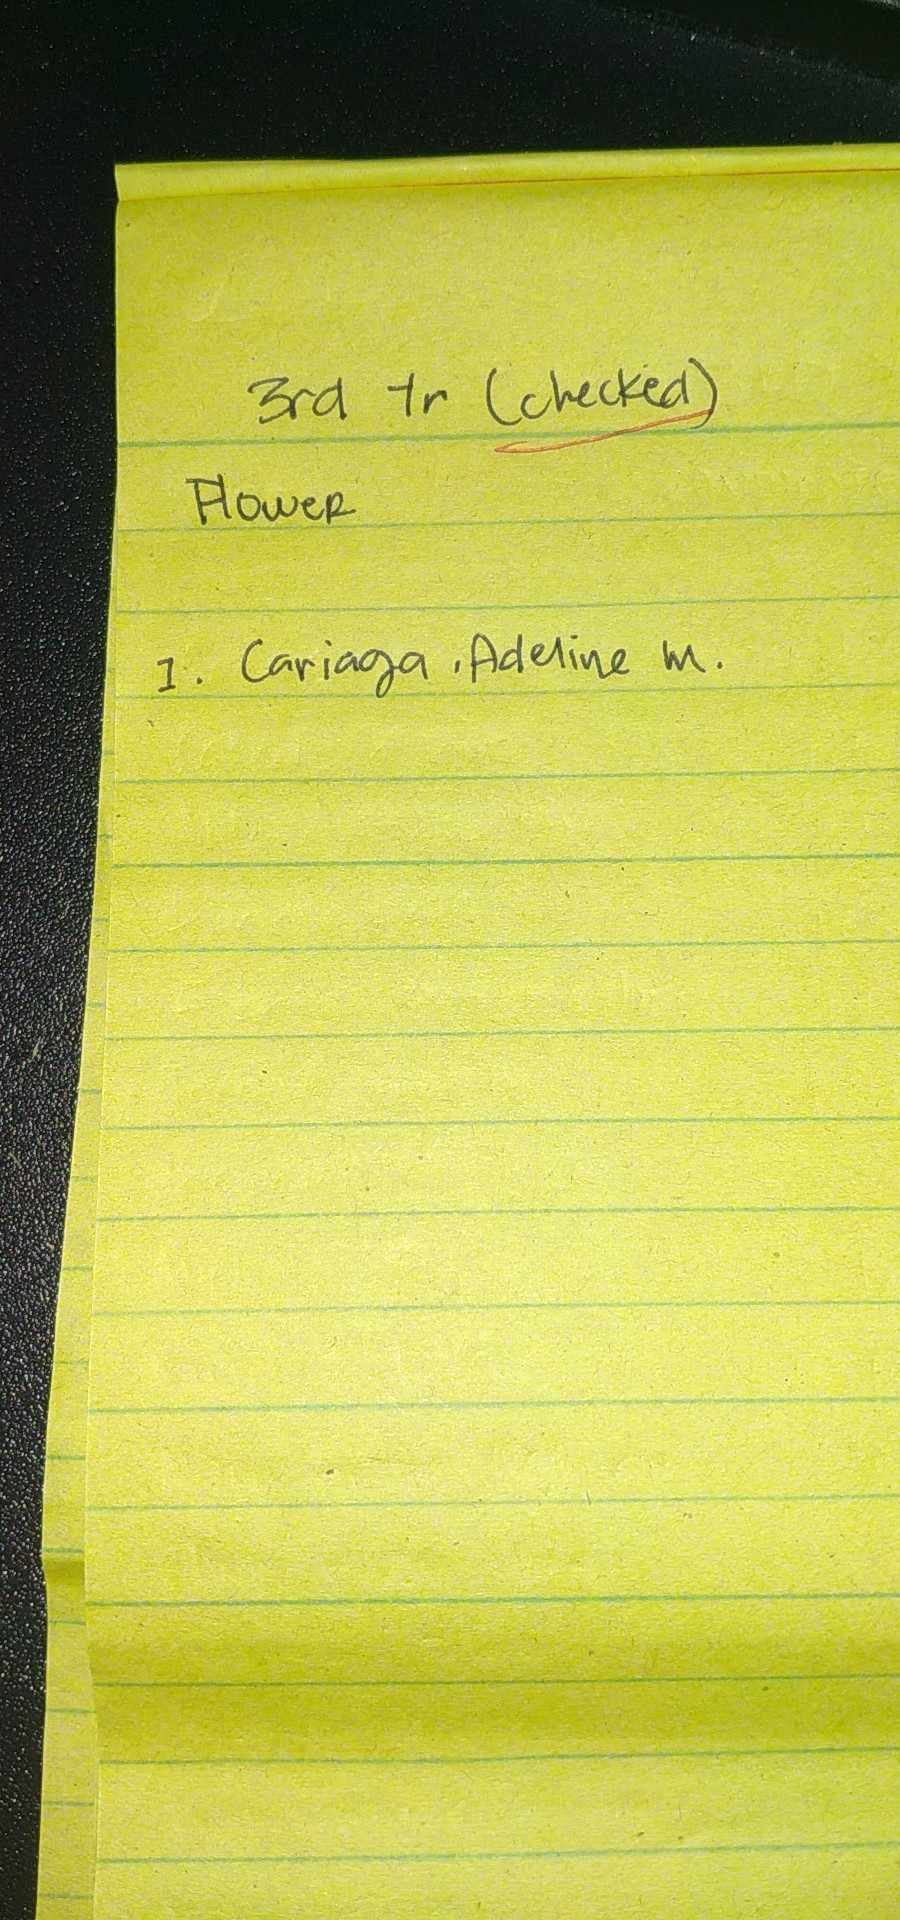 3rd Yr (checked)
Flower
1. Cariaga, Adeline M.